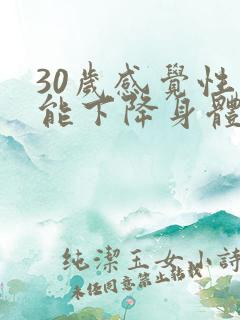 30歲感覺性
能下降身體
純潔玉女小詩
未任同意禁止轉載